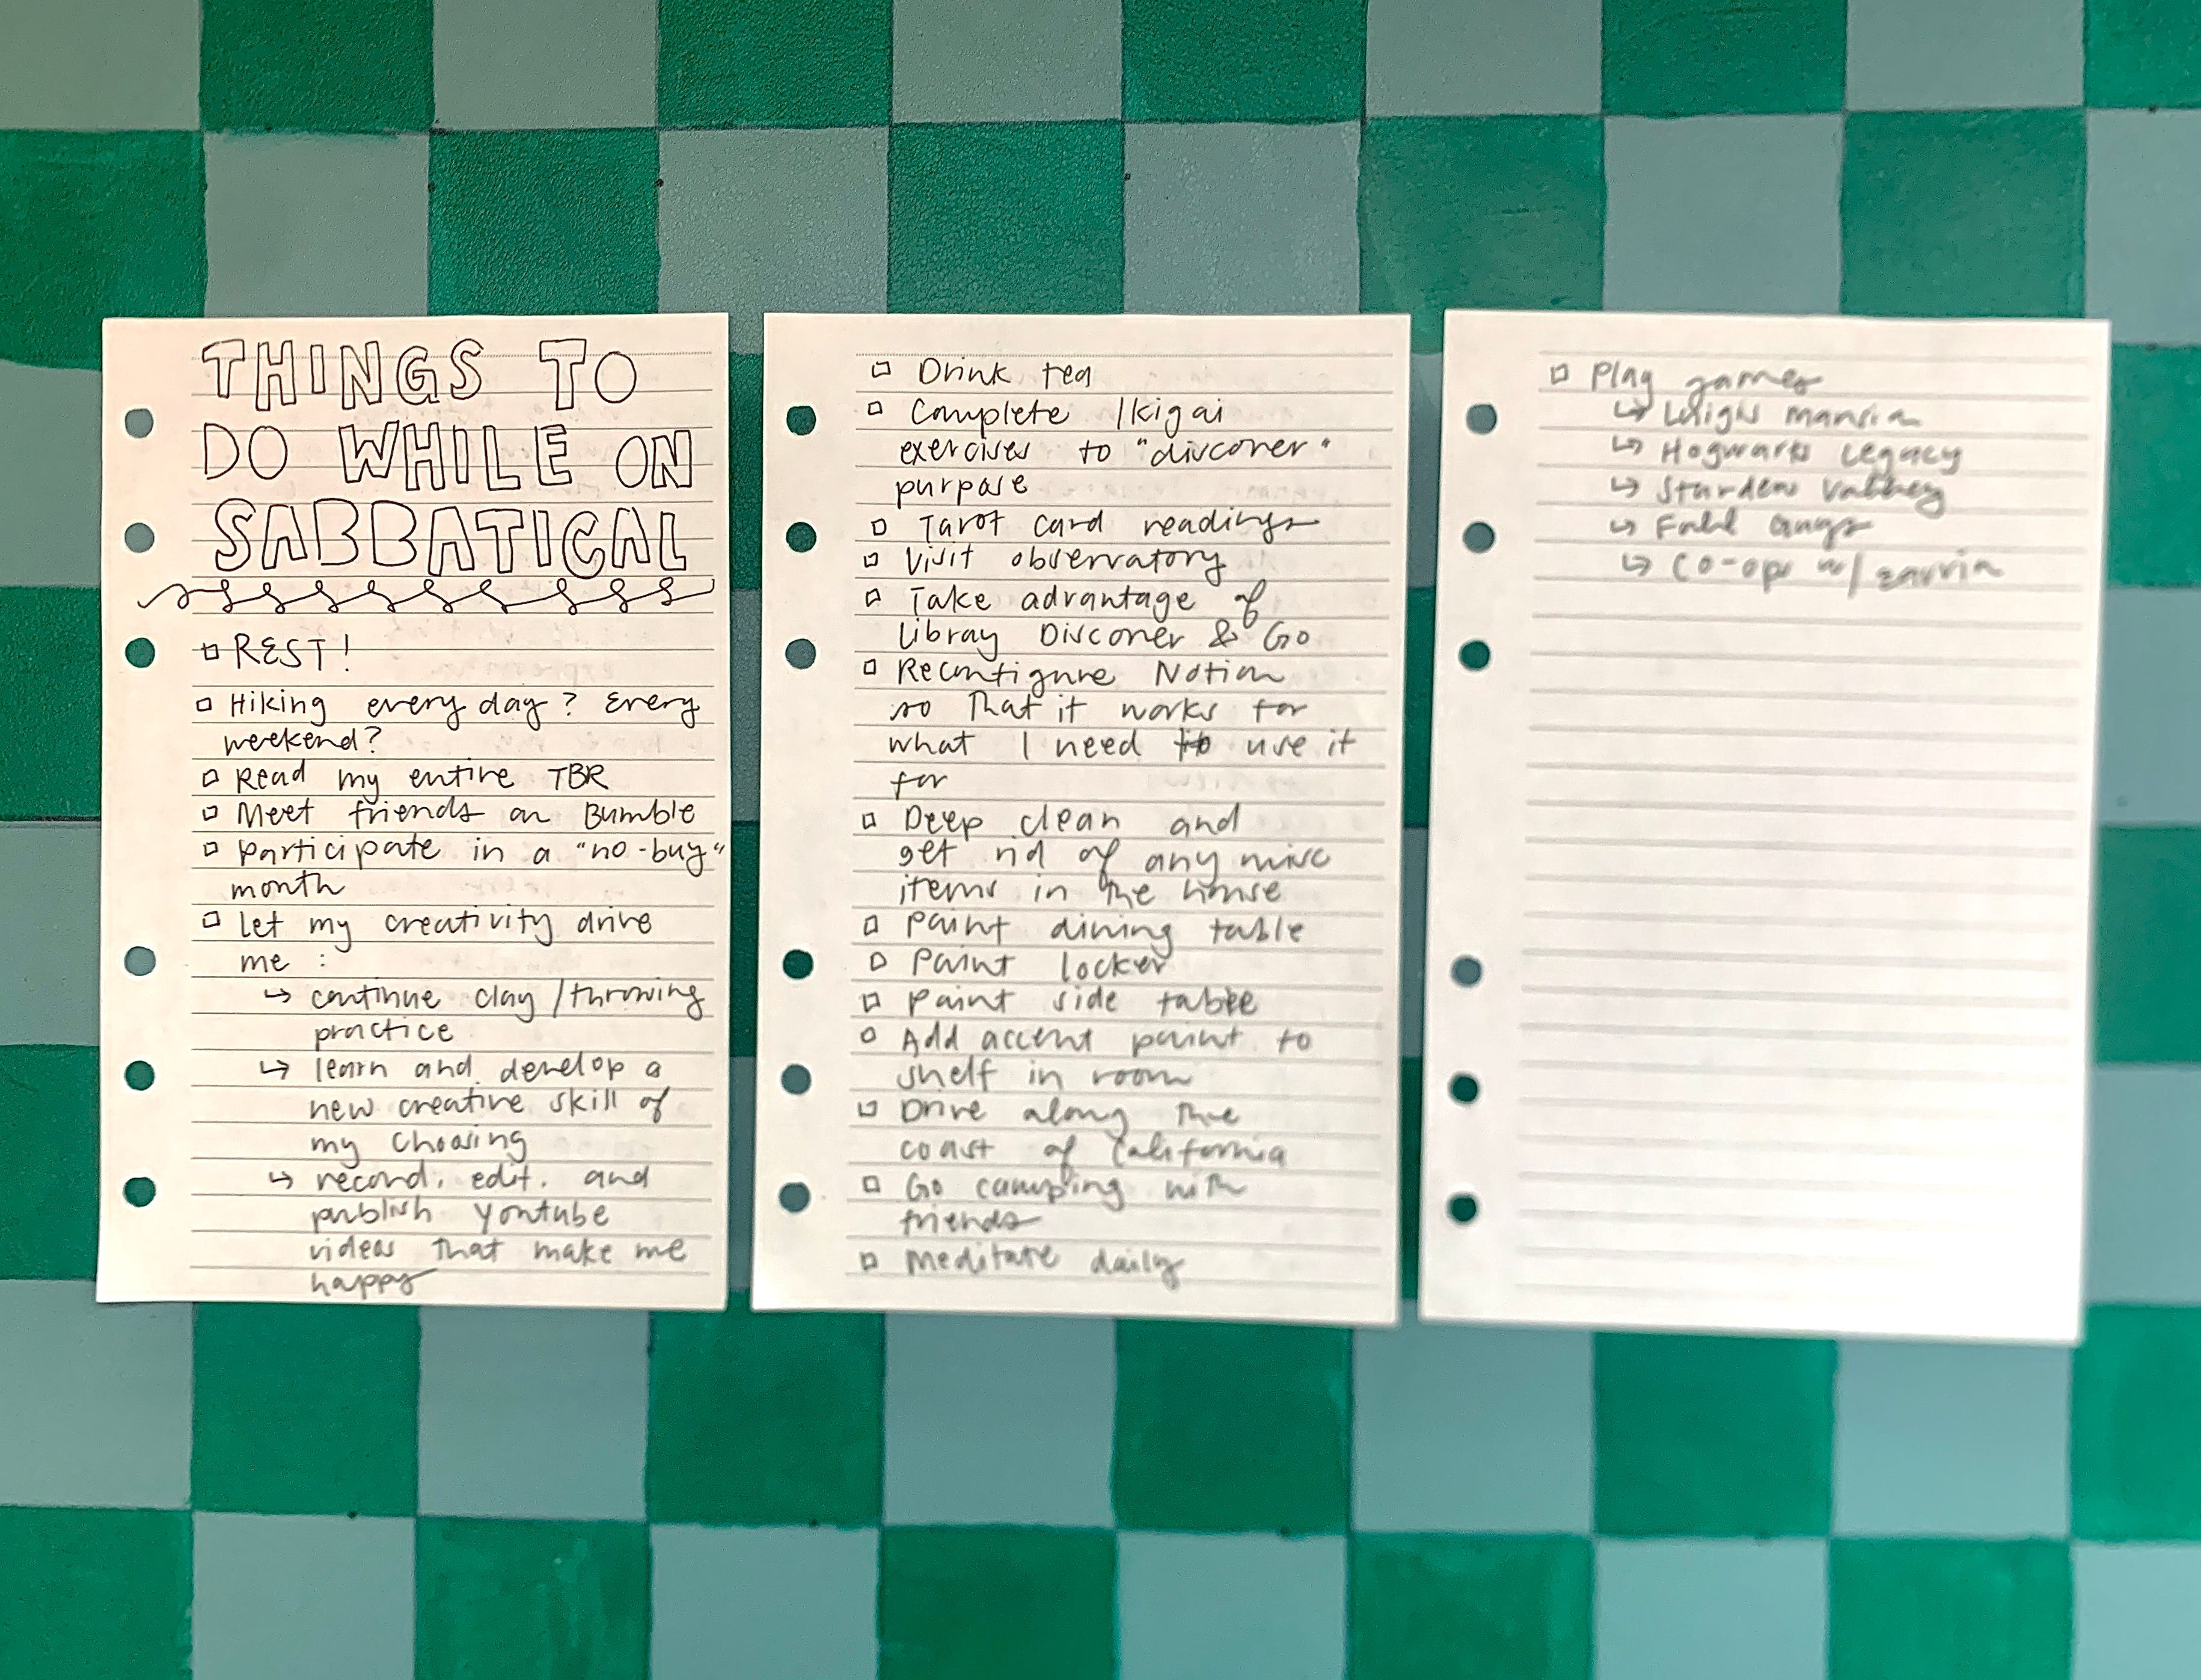 THINGS TO
DO WHILE ON
SABBATICAL
REST!
Hiking every day? Every
weekend?
Read my entire TBR
Meet friends on Bumble
participate in a "no-buy"
month
let my creativity drive
me :
↳ continue clay/throwing
practice
↳ learn and develop a
new creative skill of
my choosing
↳ record, edit, and
publish youtube
videos that make me
happy
Drink tea
Complete Ikigai
exercises to "discover"
purpose
Tarot card readings
Visit observatory
Take advantage of
Libray Discover & Go
Reconfigure Notion
so that it works for
what I need to use it
for
Deep clean and
get rid of any misc
items in the house
Paint dining table
Paint locker
Paint side table
Add accent paint to
shelf in room
Drive along the
coast of California
Go camping with
friends
Meditate daily
Play games
↳ Luigis mansion
↳ Hogwarts Legacy
↳ Stardew Valley
↳ Fall Guys
↳ CO-ops w/